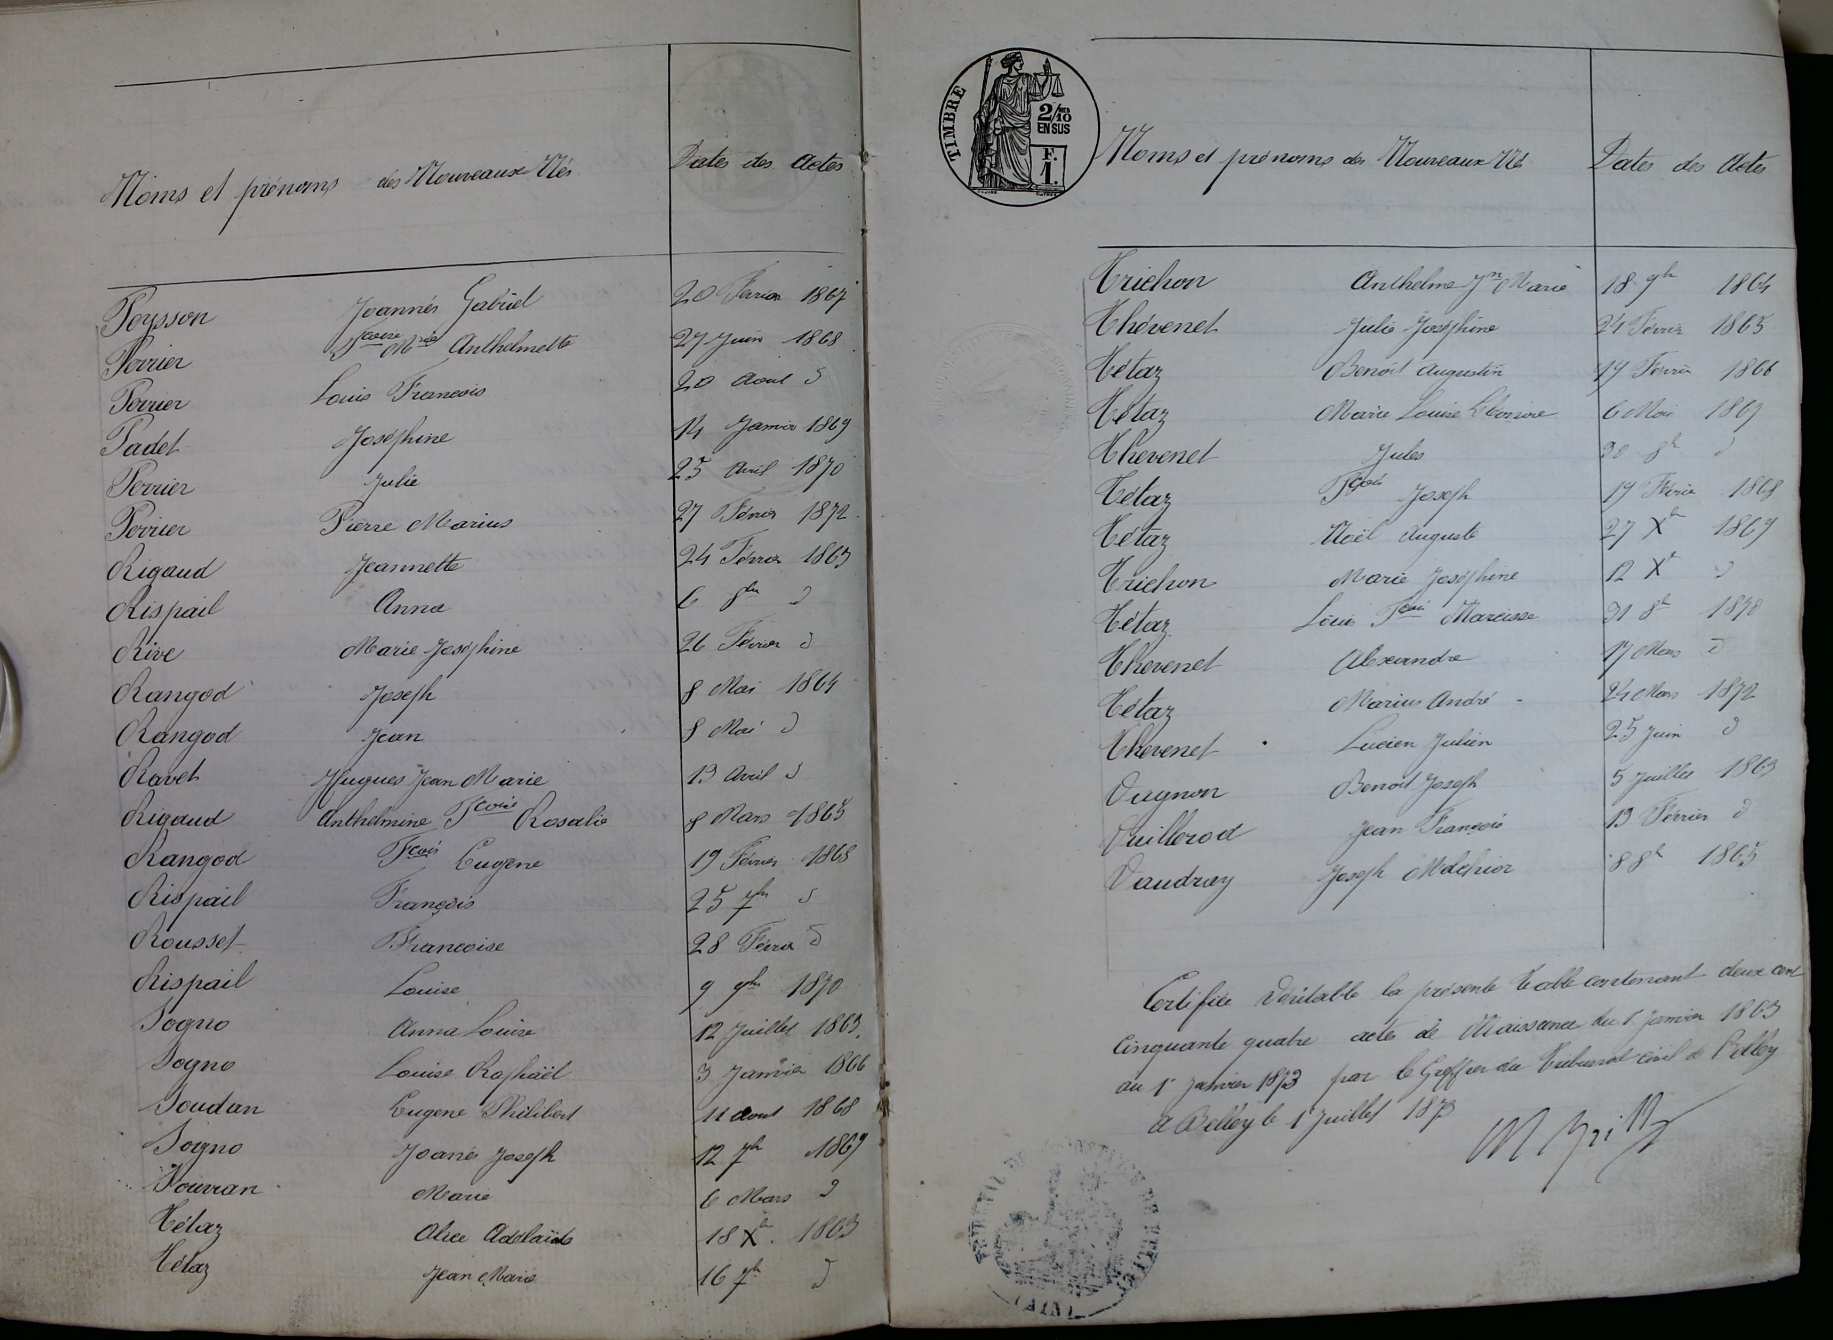 Noms et prénoms des Nouveaux Nés Dates des Actes
Poysson Joannès Gabriel 20 Février 1867
Perrier Fcoise Mrie Anthelmette 27 Juin 1868
Perrier Louis Francois 20 Aout d
Padet Joséphine 14 Janvier 1869
Perrier Julie 25 Avril 1870
Perrier Pierre Marius 27 Février 1872
Rigaud Jeannette 24 Février 1863
Rispail Anna 6 8bre d
Rive Marie Joséphine 26 Février d
Rangod Joseph 8 Mai 1864
Rangod Jean 8 Mai d
Ravet Hugues Jean Marie 13 Avril d
Rigaud Anthelmine Fcoise Rosalie 8 Mars 1865
Rangod Fcois Eugène 19 Février 1868
Rispail François 25 7bre d
Rousset Francoise 28 Février d
Rispail Louise 9 9bre 1870
Sogno Anna Louise 12 Juillet 1863
Sogno Louise Raphaël 3 Janvier 1866
Soudan Eugene Philibert 11 Aout 1868
Sogno Joanès Joseph 12 7bre 1869
Souvran Marie 6 Mars d
Tétaz Alice Adélaïde 18 Xbre 1863
Tétaz Jean Marie 16 7bre d
TIMBRE
2/10 EN SUS
F.
1.
Noms et prénoms des Nouveaux Nés Dates des Actes
Trichon Anthelme Jn Marie 18 9bre 1864
Thévenet Julie Joséphine 24 Février 1865
Tétaz Benoit Augustin 19 Février 1866
Tétaz Marie Louise 6 Mai 1867
Thevenet Jules 30 8bre d
Tétaz Fçois Joseph 19 Février 1868
Tétaz Noël Auguste 27 Xbre 1869
Trichon Marie Joséphine 12 Xbre d
Tétaz Louis Fcois Narcisse 31 8bre 1870
Thevenet Alexandre 17 Mars d
Tétaz Marius André 24 Mars 1872
Thevenet Lucien Julien 25 Juin d
Vugnon Benoit Joseph 5 Juillet 1863
Vuillerod Jean François 13 Février d
Vaudray Joseph Melchior 8 8bre 1865
Certifiée Véritable la présente Table contenant deux cent
cinquante quatre actes de Naissance du 1r Janvier 1863
au 1r Janvier 1873 par le Greffier du Tribunal civil de Belley
A Belley le 1r Juillet 1873
(AIN)